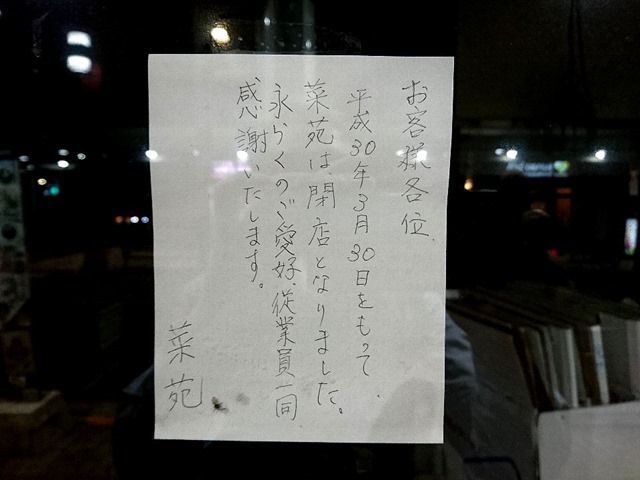 お客様各位
平成30年3月30日をもって、
菜苑は閉店となりました。
永らくのご愛好、従業員一同
感謝いたします。
菜苑